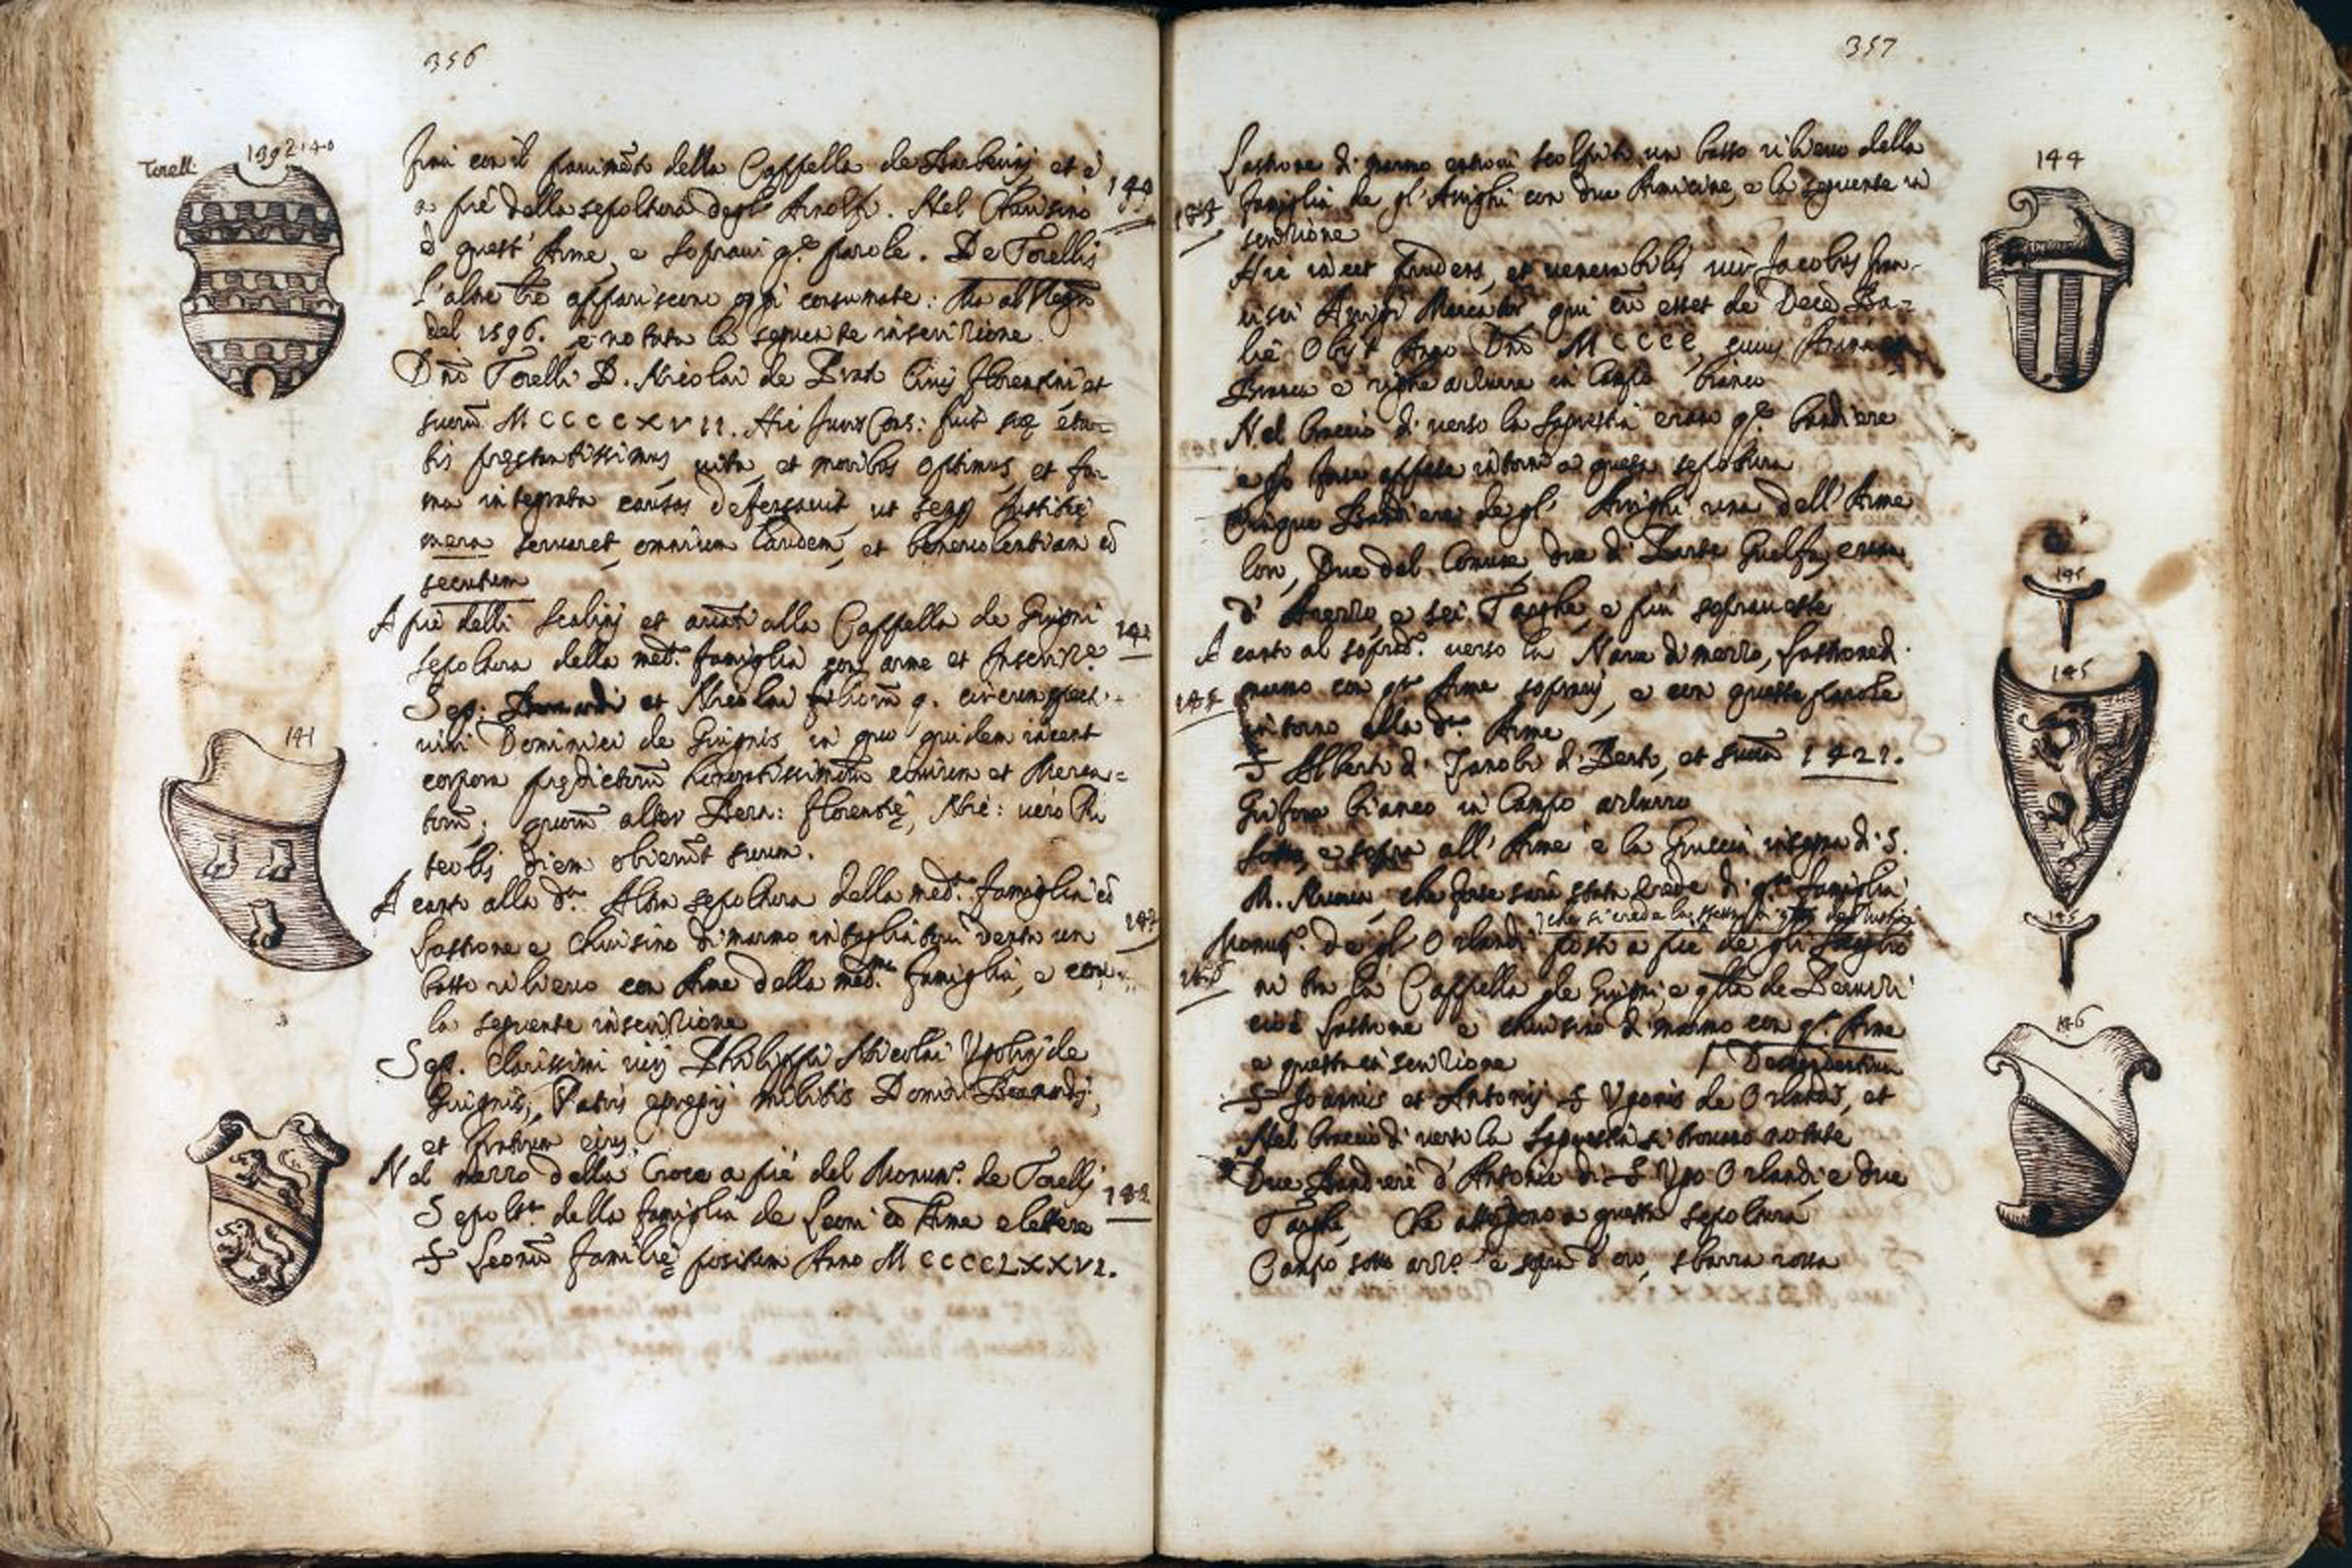 356
Torelli
140
fini con il pavimto della Cappella de Barberini et è
a piè della sepoltura degl' Arnolfi. Nel Chiusino
è quest' Arme, e sopravi qe parole. De Torellis
l'altre tre appariscono oggi consumate: Ma al
del 1596. è notata la seguente inscrizione
Dni Torelli D. Nicolai de Prato Civis Florentini et
suorū MCCCCXVII. Hic Juris Cons: fuit suę eta=
tis pręstantissimus vita, et moribus optimus, et fa
ma integrata causas defensavit, ut semp Justitię
mera servaret, omnium laudem, et benevolentiam cō
secutum
A piè delli Scalini et avāti alla Cappella de Giugni
141
sepoltura della medma famiglia con arme et Inscrizne
Sep. Bernardi et Nicolai filiorū q. circumspect
viri Dominici de Giugnis, in quo quidem iacent
corpora prędictorū honoratissimorū civium et Merca=
torū; quorū alter Bern: Florentię, Nic: vero Pi
scibis diem obierūt suum.
141
A canto alla da Altra sepoltura della medma famiglia cō
lastrone e chiusino di marmo intagliatovi dentro un
basso rilievo con Arme della medma famiglia, e con
la seguente inscrizione
Sep. Clarissimi viri Philippi Nicolai Ugolini de
Giugnis, Patris egregij militis Domini Bernardi,
et fratrum eius
Nel mezzo della Croce a piè del Monumto de Torelli
Sepoltra della famiglia de Leoni cō Arme e lettere
S Leonū familię positum Anno MCCCCLXXVI.
357
144
Lastrone di marmo entrovi scolpito un basso rilievo della
famiglia de gl' Arrighi con due Armicine, e la seguente in
scrizione
Hic iacet prudens, et venerabilis vir Jacobus Fran-
cisci Arrigi Mercator qui cū esset de Decē Ba-
lie Obijt Anno Dni MCCCC, cuius Anima
Bianca e righe azzurre in Campo bianco
Nel braccio di verso la Sagrestia erano qe bandiere
e so forse appese intorno a questa sepoltura
Cinque Bandiere de gl' Arrighi una dell' Arme
lor, Due del Comune, due di Parte Guelfa,
d' Arezzo, e sei Targhe, e più sopraveste
A canto al sopradto verso la Nave di mezzo, lastrone di
145
145
marmo con qta Arme sopravi, e con queste parole
intorno alla da Arme
S Alberti di Zanobi di Berto, et suorū 1421.
Grifone bianco in Campo azzurro
Sotto, e sopra all' Arme è la Gruccia insegna di S.
M. Nuova, che forse sarà stata Erede di qta famiglia
145
Monumto de gl' Orlandi posto a piè de gli Scaglio
ni tra la Cappella de Giugni, e qlla de Peruzzi
cioè lastrone e chiusino di marmo con qta Arme
146
e questa inscrizione
Descendentium
S Joannis et Antonij S Ugonis de Orlandis, et
Nel braccio di verso la Sagrestia si trovano notate
Due Bandiere d' Antonio di S Ugo Orlandi e due
Targhe, che attengono a questa sepoltura
Campo sotto azzo e sopra d' oro, sbarra rossa